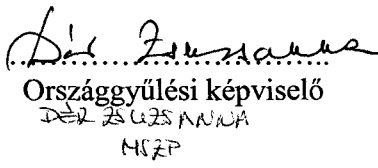 Dér Zsuzsanna
Országgyűlési képviselő
DÉR ZSUZSANNA
MSZP